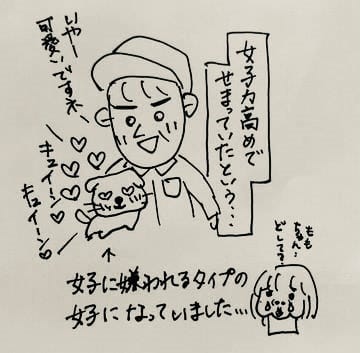 女子力高めで
せまっていたという…
いやー
可愛いですネ
キュイーン♡
キュイーン♡
↑
女子に嫌われるタイプの
女子になっていました…
もも
ちゃん…
どして?